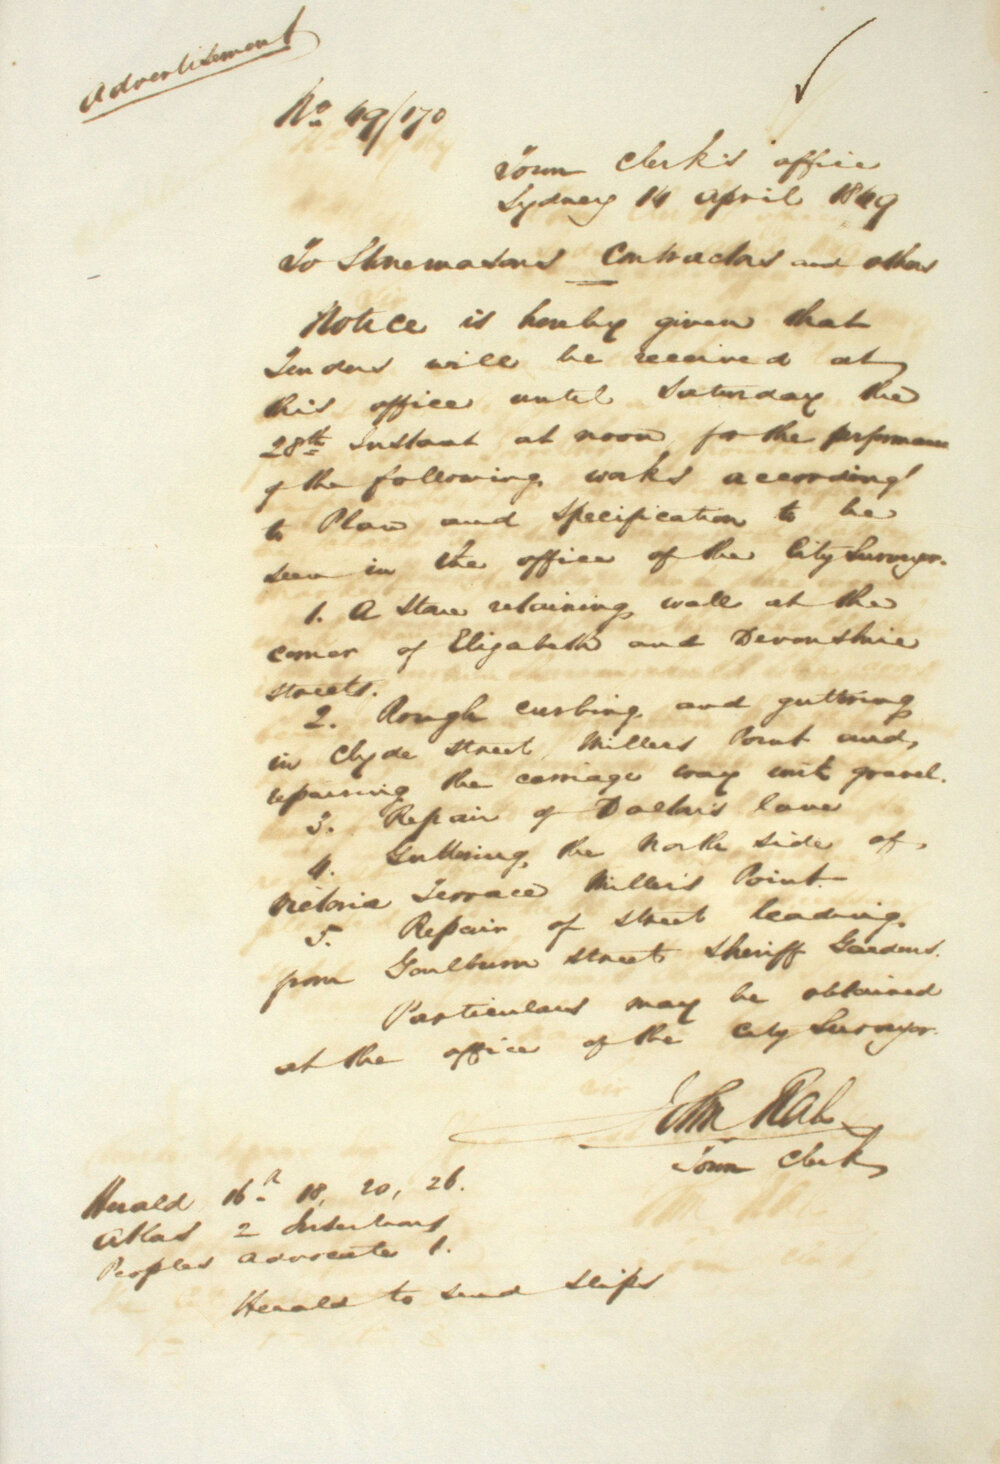 Advertisement
No 49/170
Town Clerk's office
Sydney 14 April 1849
To Stonemasons Contractors and others
Notice is hereby given that
Tenders will be received at
this office until Saturday the
28th Instant at noon for the performance
of the following works according
to Plan and Specification to be
seen in the office of the City Surveyor.
1. A Stone retaining wall at the
corner of Elizabeth and Devonshire
streets.
2. Rough curbing and guttering
in Clyde Street Millers Point and
repairing the carriage way with gravel.
3. Repair of Dalton's lane
4. Guttering the North side of
Victoria Terrace Miller's Point
5. Repair of street leading
from Goulburn street Sheriff Gardens.
Particulars may be obtained
at the office of the City Surveyor.
John Rae
Town Clerk
Herald 16th 18, 20, 26.
Atlas 2 Insertions
Peoples Advocate 1.
Herald to send slips